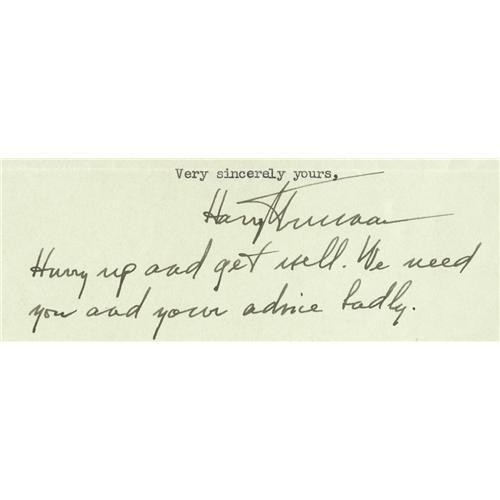 Very sincerely yours,
Harry Truman
Hurry up and get well. We need
you and your advice badly.